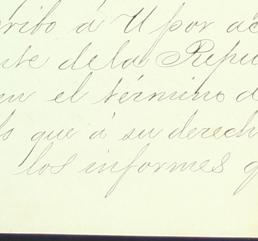 cribo á U por ac
nte de la Repu
en el término d
lo que á su derech
los informes q